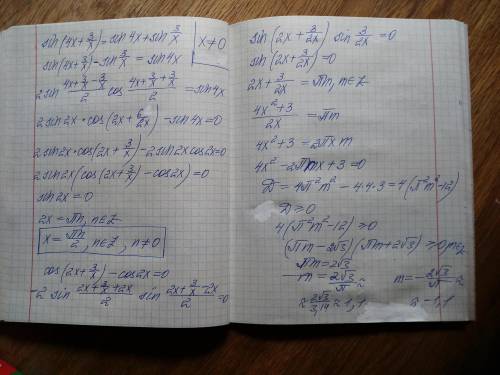 sin(4x + 3/x) = sin 4x + sin 3/x
x ≠ 0
sin(4x + 3/x) - sin 3/x = sin 4x
2 sin (4x + 3/x - 3/x)/2 cos (4x + 3/x + 3/x)/2 = sin 4x
2 sin 2x · cos(2x + 6/2x) - sin 4x = 0
2 sin 2x · cos(2x + 3/x) - 2 sin 2x cos 2x = 0
2 sin 2x (cos(2x + 3/x) - cos 2x) = 0
sin 2x = 0
2x = πn, n∈Z
x = πn/2, n∈Z, n ≠ 0
cos(2x + 3/x) - cos 2x = 0
-2 sin (2x + 3/x + 2x)/2 sin (2x + 3/x - 2x)/2 = 0
sin(2x + 3/2x) sin 3/2x = 0
sin(2x + 3/2x) = 0
2x + 3/2x = πm, m∈Z
(4x² + 3)/2x = πm
4x² + 3 = 2πxm
4x² - 2πmx + 3 = 0
D = 4π²m² - 4·4·3 = 4(π²m² - 12)
D ≥ 0
4(π²m² - 12) ≥ 0
(πm - 2√3)(πm + 2√3) ≥ 0, m∈Z
πm = 2√3
m = 2√3/π ≈
m = -2√3/π ≈
≈ 2√3/3,14 ≈ 1,1
≈ -1,1